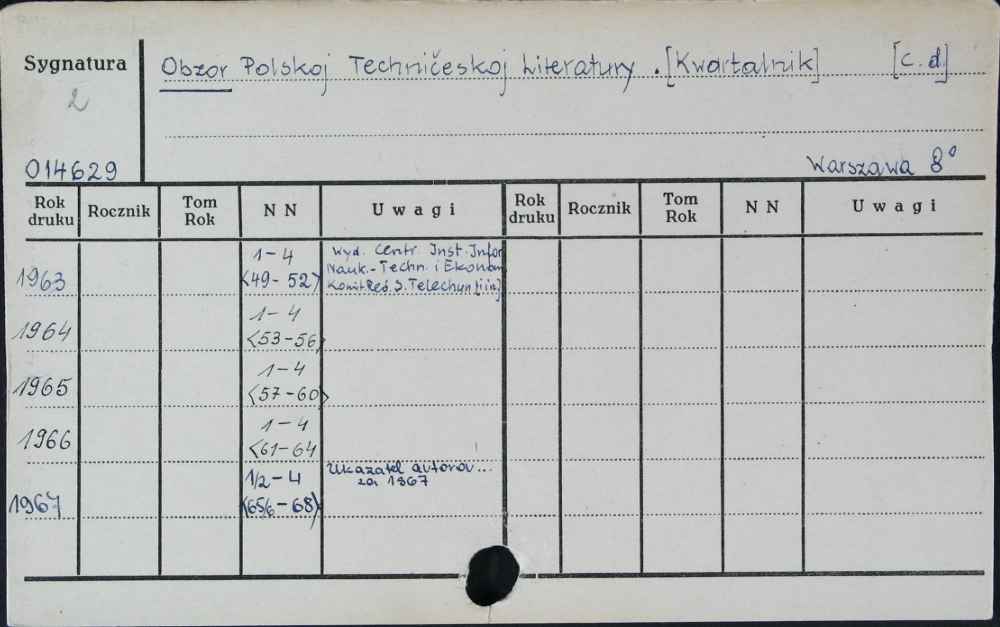 Sygnatura
Obzor Polskoj Techničeskoj Literatury. [Kwartalnik] [C.d.]
2
014629
Warszawa 8°
Rok druku Rocznik Tom Rok NN Uwagi Rok druku Rocznik Tom Rok NN Uwagi
1963 1-4 <49-52> Wyd. Centr Inst. Infor
Nauk.-Techn. i Ekonom
Komit Red. S. Telechun [i in.]
1964 1-4 <53-56>
1965 1-4 <57-60>
1966 1-4 <61-64
1967 1/2-4 <65/6-68> Ukazatel autorov...
za 1967